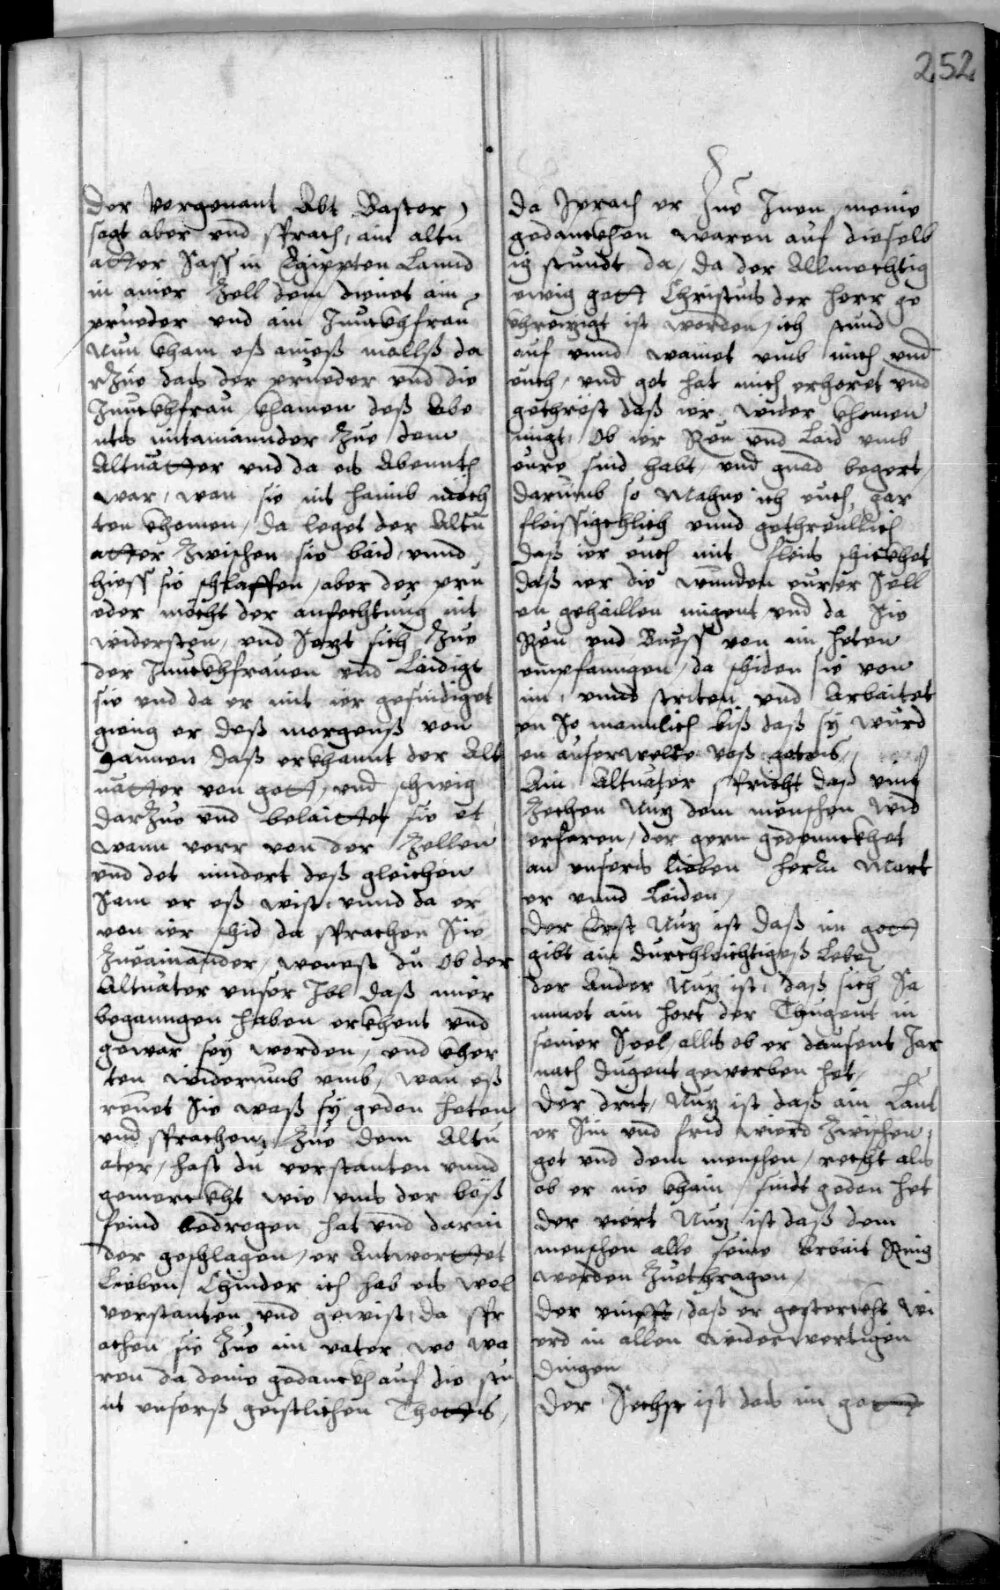 252
Der vorgenant Abt Bastor
sagt aber und sprach, ain altu
atter sass in Egippten Lannd
in ainer Zell dem dienet ain
prueder und ain Junckhfrau
Nun kham eß aineß mallß da
rzue das der prueder und die
Junckhfrau khamen deß Abe
nts mitainannder zue dem
Altuatter und da es Abennt
war, wan sie nit haimb möch
ten khomen, da leget der Altu
atter zwischen sie baid, unnd
hiess sie schlaffen, aber der pru
eder mocht der anfechtung nit
widersten, und sezt sich zue
der Junckhfrauen und Laidigt
sie und da er mit ier gesindiget
gieng er deß morgenß von
dannen daß erkhannt der Alt
uatter von gott, und schwig
darzue und belaittet sie et
wann verr von der Zellen
und det nindert deß gleichen
Sam er eß wist, unnd da er
von ier schid da sprachen Sie
Zueainander, wenest du ob der
Altuater unser Ibl daß mier
beganngen haben erkhent und
gewar sey worden, und kher
ten widerumb umb, wan eß
reuet Sie waß sy geden heten
und sprachen zue dem Altu
ater, hast du verstanten unnd
gemerckht wie uns der böß
feind bedrogen hat und darni
der geschlagen, er Antwortet
Lieben Chinder ich hab es wol
verstanten und gewist, da spr
achen sie zue im vater, wo wa
ren da deine gedanckh auf die stu
nt unserß geistlichen Thottß,
Da sprach er Zue Inen meine
gedanckhen waren auf dieselb
ig stundt da, da der Allmechtig
ewig gott Christus der herr ge
khreizigt ist worden, ich stund
auf unnd wainet umb mich und
euch, und got hat mich erheret und
gethröst daß ier wider khomen
migt, Ob ier Reu und Laid umb
eure sind habt, und gnad begert,
darumb so Mahne ich euch gar
fleissigkhlich unnd gethreullich
daß ier euch mit fleis schickhet
daß ier die wunden eurer Sell
en gehaillen migent und da Sie
Reu und Buess von im heten
empfanngen, da schiden sie von
im, unnd striten und Arbaitet
en so mennlich biß daß sy wurd
en außerwelte vaß gotteß,
Ain Altuater spricht daß umb
Zechen Nuz dem menschen wid
erfaren, der gern gedennckhet
an unsers lieben herrn Mart
er unnd Leiden,
Der Erst Nuz ist daß im gott
gibt ain durchleichtigeß Leben
der Ander Nuz ist, daß sich Sa
mnet ain hort der Thugent in
seiner Seel, allß ob er dausent Jar
nach dugent geworben het,
Der drit, Nuz ist daß ain Laut
er Sin und frid wierd zwischen
got und dem menschen, recht als
ob er nie khain sindt geden het
Der viert Nuz ist daß dem
menschen alle seine Arbait Ring
werden Zuethragen,
Der vinfft, daß er gesterckht wi
erd in allen widerwertigen
dingen
Der Sechst ist das im gott